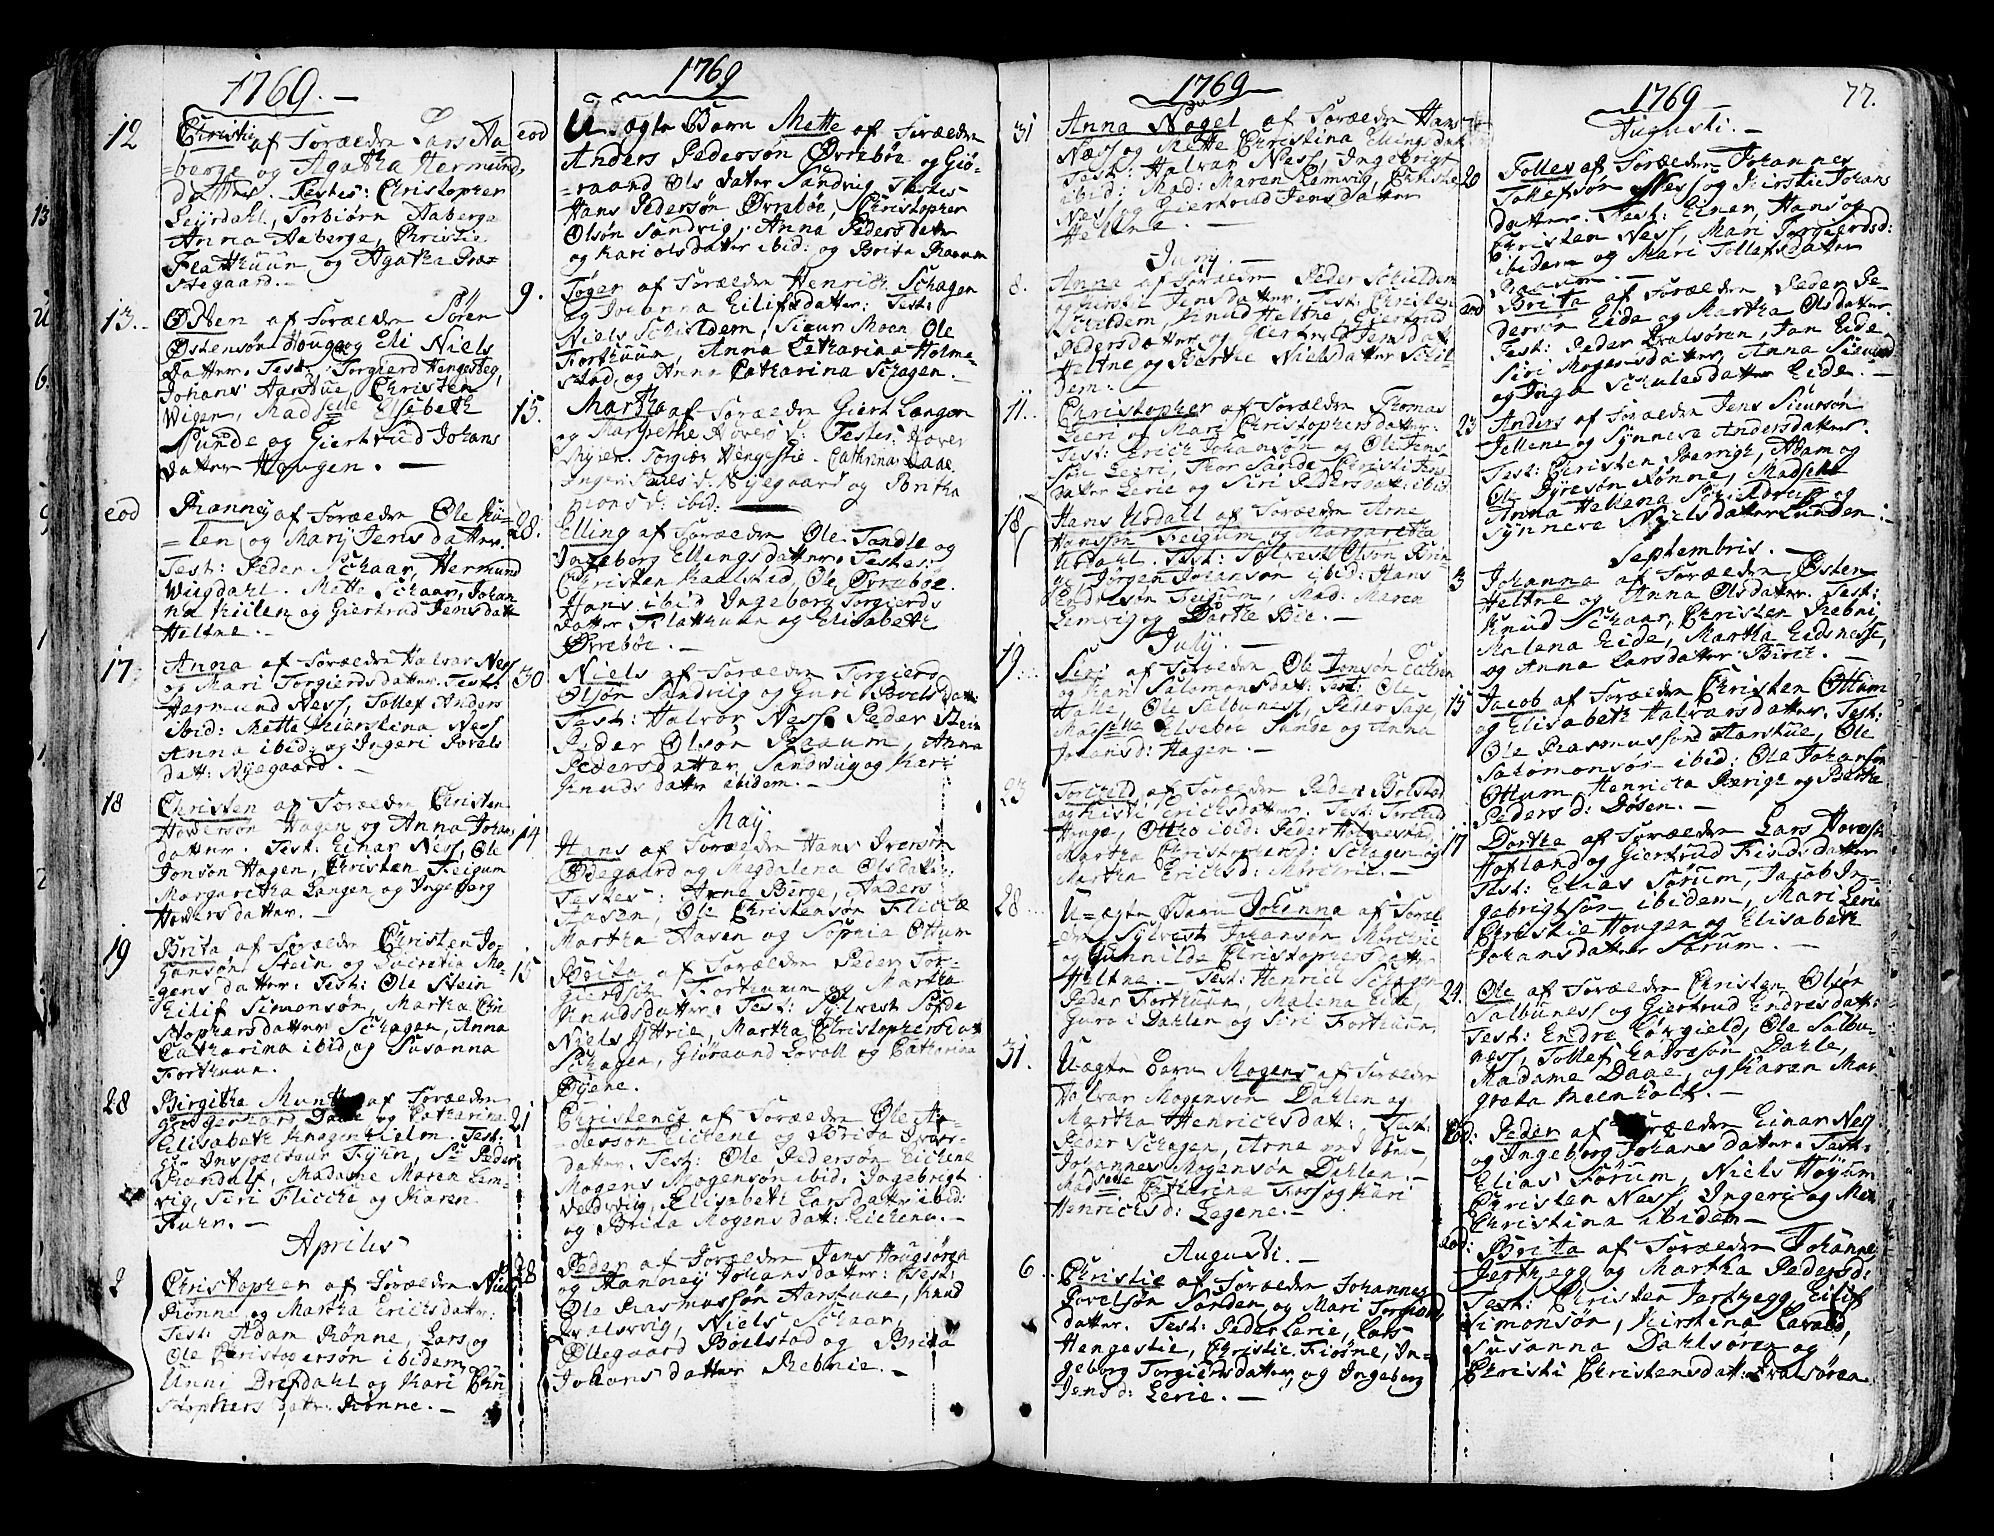 1769. —
12 Christi af Forældre Lars Aa-
=berge og Agatha Hermunds
datter. Testes: Christopher
Torbiörn Aaberge
Anna Aaberge, Christie
Flathuun og Agatha Præ-
stegaard. —
13. Østen af Forældre Sören
Østensön Houge og Eli Niels
datter. Test: Torgierd Hengesteg,
Johans Aarstue, Christen
Wigen, Madselle Elsebeth
Sunde og Giertrud Johans
datter Hougen. —
eod Rannej af Forældre Ole Kö-
=len og Marj Jens datter.
Test: Peder Schaar, Hermund
Wigdahl. Mette Schaar, Johan
na Kiilen og Giertrud Jensdatt
Heltne. —
17. Anna af Forældre Halvar Ness
og Mari Torgierdsdatter. Test:
Hermund Ness, Tollef Anders
ibid: Mette Kierstina Ness
Anna ibid: og Ingeri Povels
datt: Nyegaard. —
18 Christen af Forældre Christen
Howersön Hagen og Anna Johans
datter. Test: Einar Ness, Ole
Jonson Hagen, Christen Feigum
Margaretha Langen og Ingeborg
Howers datter. —
19 Brita af Forældre Christen Jo-
hansön Stein og Lucretia Mo-
=gens datter. Test: Ole Stein
Eilif Simonsön, Martha Chri
stophers datter Schagen, Anna
Catharina ibid og Susanna
Forthuun.
28 Birgitha Munthe af Forældre
Daae og Catharina
Elisabeth Knagenhielm. Test:
Hr Inspecteur Fÿhn, Sr Peder
Randulf, Madame Maren Lem-
vig, Siri Flicke og Karen
Fuhr. —
Aprilis
2 Christopher af Forældre Niels
Rönne og Martha Erichsdatter:
Test: Adam Rönne, Lars og
Ole Christopersön ibidem
Unni Drefdahl og Kari Chri
stophers datr: Rönne. —
1769
eod U-ægte Barn Mette af Forældre
Anders Pedersön Øvrebøe og Giö-
=raand Ols datter Sandvig Testes
Hans Pedersön Øvrebøe, Christopher
Olsön Sandvig, Anna Peders datter
og Kari Olsdatter ibid: og Brita Raaum
9. Töger af Forældre Henrich Schagen
og Johanna Eilifsdatter: Test:
Niels Schieldem, Sigur Moen Ole
Forthuun, Anna Catharina Holme-
stad og Anna Catharina Schagen. —
15. Martha af Forældre Giert Langen
og Marrethe Hovers d: Testes: Hover
Myren. Torgier Hengestie. Cathrina Daae.
Inger Povels d. Nyegaard og Dorthe
Mons d: ibid:
28. Elling af Forældre Ole Tandle og
Ingeborg Ellings datter. Testes:
Christen Kaalstad, Ole Øvrebøe.
Hans ibid Ingeborg Torgierds
datter Flathuun og Elisabeth
Øvrebøe. —
30 Niels af Forældre Torgierd
Olsön Sandvig og Guri Povels datt:
Test: Halvor Ness, Peder Stein
Peder Olsön Raaum, Anna
Peders datter Sandvig og Kari
Knuds datter ibidem. —
May
14 Hans af Forældre Hans Iversön
Ødegaard og Magdalena Olsdatt:
Testes: Arne Berge, Anders
Aasen, Ole Christensön Flicke
Martha Aasen og Sophia Ottum
15 Brita af Forældre Peder Tor-
gierdsön Forthuun og Martha
Knudsdatter. Test: Sÿlvest Söfde
Niels Yttrie, Martha Christophersdatt
Schagen, Giöraand Lovoll og Catharina
Øyene.
21 Christence af Forældre Ole An-
dersön Eichene og Brita Iver-
datter. Test: Ole Pedersön Eichene
Mogens Mogensön ibid, Ingebrigt
Veldvig, Elisabeth Larsdatter ibid:
og Brita Mogens datt: Eichene. —
28 Peder af Forældre Jens Hougsören
og Hanorej Johansdatter: Test:
Ole Rasmussön Aarstue, Knud
Qvalsvig, Niels Schaar,
Ollegaard Bollstad og Brita
Johans datter Rebnie. —
1769
31 Anna Nagel af Forældre Hans
Ness og Mette Christina Ellingsdatter
Test: Halvar Ness, Ingebrigt
ibid: Mad: Maren Lemvig, Christie
Ness og Giertrud Jens datter
Heltne. —
Junj. —
8. Anna af Forældre Peder Schieldem
og Kirstie Jensdatter. Test: Christen
Schieldem, Knud Heltne, Giertrud
Pedersdatter og Giertrud Jens datter
Heltne og Birthe Nielsdatter Schiel
dem. —
11. Christopher af Forældre Thomas
Lieri og Mari Christophersdatter:
Test: Erich Johansön og Ole Jens
sön Leeri, Thor Sande Christi Jens
datter Lerie og Siri Peders datt: ibid
18 Hans Urdall af Forældre Arne
Hanssön Feigum og Margaretha
Urdahl. Test: Sÿlvest Olsön
og Jörgen Johansön ibid: Hans
Endresön Feigum, Mad: Maren
Lemvig og Dorthe Bøe. —
July. —
19. Siri af Forældre Ole Jonsön Eichen
og Kari Salomonsdat: Test: Ole
Halle, Ole Salbuness, Peter Sage,
Madselle Elsebe Sunde og Anna
Johansd: Hagen. —
23 Torchild af Forældre Peder Bolstad
og Kisti Erichsdatter. Test: Torchild
Houge, Ottho ibid: Peder Holmestad
Martha Christophersd: Schagen og
Martha Erichsd:
28 U-ægte Barn Johanna af Forel
dre Sÿlvest Johansön
og Gunnilda Christophersdatter
Heltne. — Test: Henrich Schagen
Peder Forthuun, Malena Eide,
Guro i Dahlen og Siri Forthuun.
31. Uægte Barn Mogens af Forældre
Halvar Mogensön Dahlen og
Martha Henrichsdat: Test:
Peder Schagen, Arne ved Hun,
Johannes Mogensön Dahlen. —
Madselle Catharina Foss og Kari
Henrichsd: Legene. —
Augusti. —
6 Christie af Forældre Johannes
Povelsön Sanden og Mari Torgierds
datter. Test: Peder Lerie, Lars
Hengestie, Christie Fiösne, In-
geborg Torgiersdatter og Ingeborg
Jensd: Lerie. —
1769 77.
Augusti. —
20 Tollef af Forældre Johannes
Tollefsön Ness og Kirstie Johans
datter. Test: Einer, Hans og
Christen Ness, Mari Torgierdsd:
ibidem og Mari Tollefsdatter
Raaum. —
eod Brita af Forældre Peder Pe-
dersön Eide og Martha Olsdatter.
Test: Peder Qvalsören, Jan Eide,
Siri Mogensdatter, Anna Sigurd
og Inga Schulesdatter Eide. —
23 Anders af Forældre Jens Siursön
Jellene og Sÿnneve Andersdatter.
Test: Christen Berrige, Adam og
Ole Iversön Rönne, Madselle
Anna Helena og
Synneve Nielsdatter Lunden. —
Septembris. —
3 Johanna af Forældre Østen
Heltne og Anna Olsdatter. Test:
Knud Schaar, Christen Rebni,
Malena Eide, Martha Eidsnesse,
og Anna Larsdatter Birch. —
15 Jacob af Forældre Christen Ottum
og Elisabeth Halvarsdatter. Test:
Ole Rasmussönd Aarstue, Ole
Salomonsön ibid: Ole Johansön
Ottum, Henricha Rærige og Berthe
Peders d: Døsen. —
17 Dorthe af Forældre Lars Haress
Hofland og Giertrud Finds datter
Test: Elias Sörum, Jacob In-
gebrigtsön ibidem, Mari Lerie
Christie Hougen og Elisabeth
Johansdatter Sörum. —
24. Ole af Forældre Christen Olsön
Salbuness og Giertrud Endresdatt:
Test: Endre Lörgield, Ole Salbu-
ness, Tollef Dahle,
Madame Daae, og Karen Mar
greta Meenholt. —
Eod: Peder af Forældre Einar Ness
og Ingeborg Johansdatter. Test:
Elias Sörum, Niels Höyum
Christen Ness, Ingeri og Met
Christina ibidem —
Eod: Brita af Forældre Johannes
Jerthegg og Martha Pedersd:
Test: Christen Jerthegg, Eilif
Simonsön, Kirstina Lovold,
Susanna Dahlsören og
Christi Christensdatt: Qvalsören